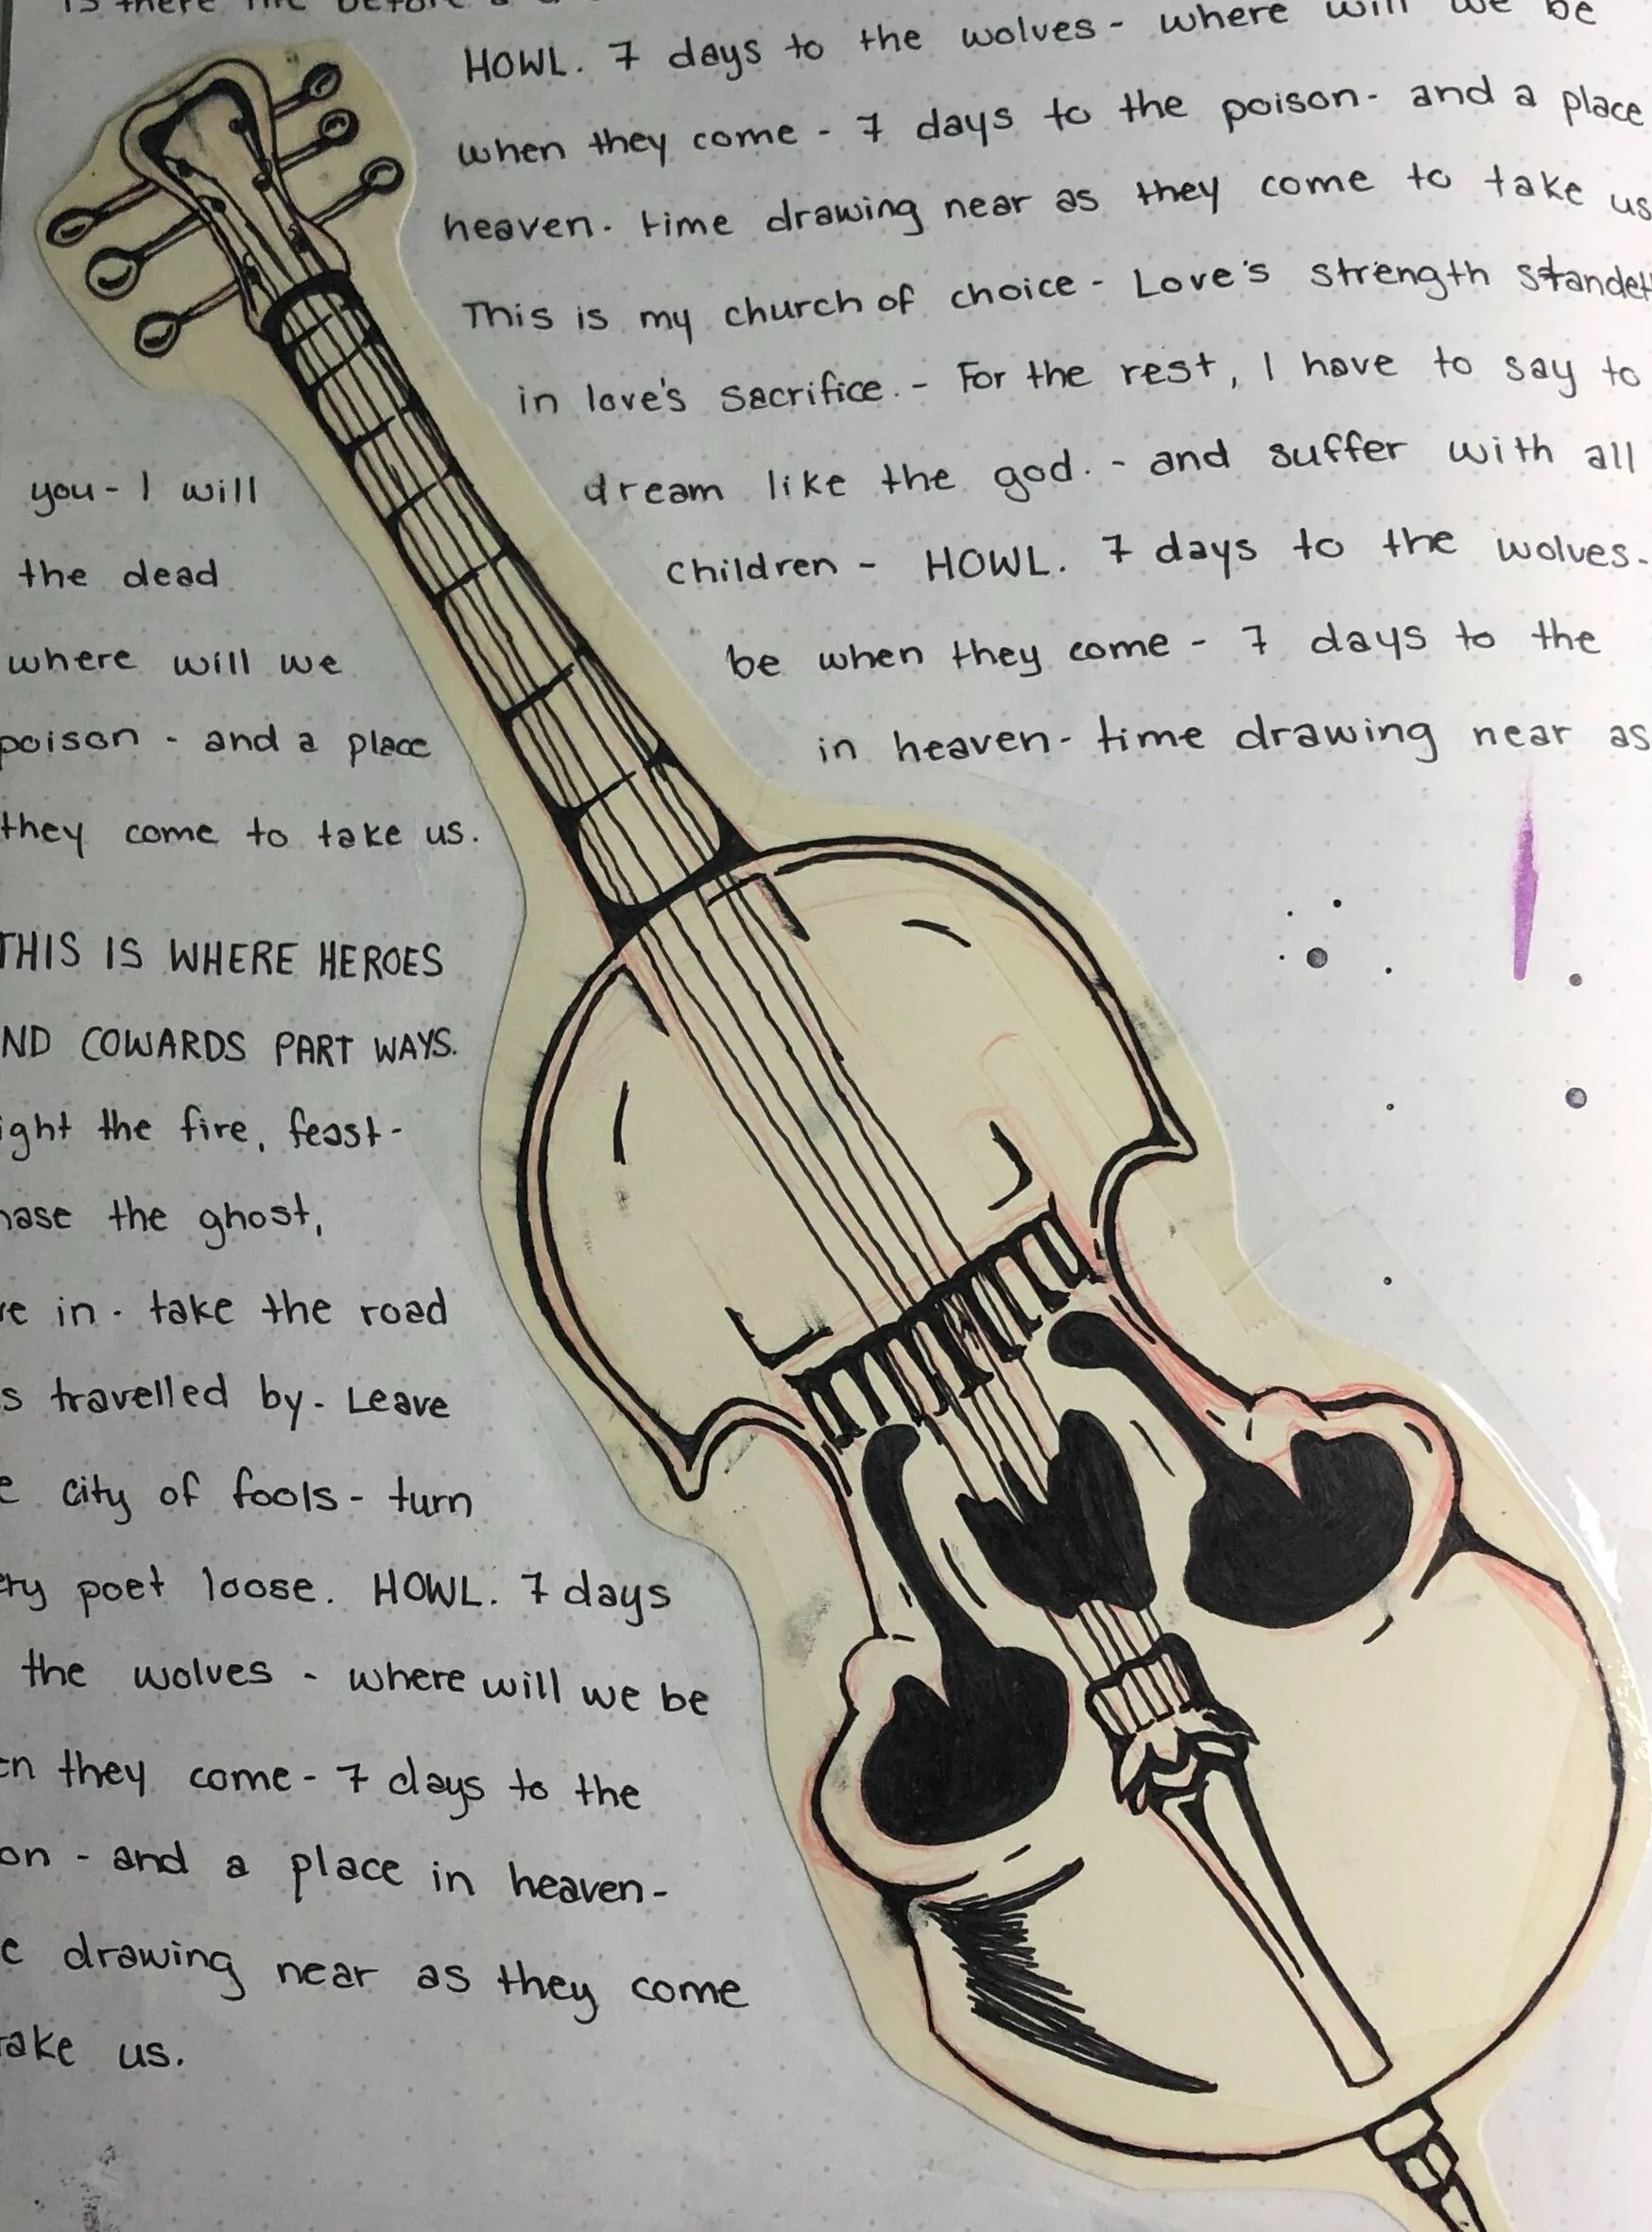 is there
HOWL. 7 days to the wolves - where will we be
when they come - 7 days to the poison - and a place
heaven. time drawing near as they come to take us
This is my church of choice - Love's strength standeth
in love's sacrifice. - For the rest, I have to say to
you - I will dream like the god. - and suffer with all
the dead children - HOWL. 7 days to the wolves.
where will we be when they come - 7 days to the
poison - and a place in heaven - time drawing near as
they come to take us.
THIS IS WHERE HEROES
ND COWARDS PART WAYS.
ight the fire, feast -
hase the ghost,
ve in. take the road
s travelled by. Leave
e city of fools - turn
ery poet loose. HOWL. 7 days
the wolves - where will we be
en they come - 7 days to the
on - and a place in heaven -
e drawing near as they come
take us.